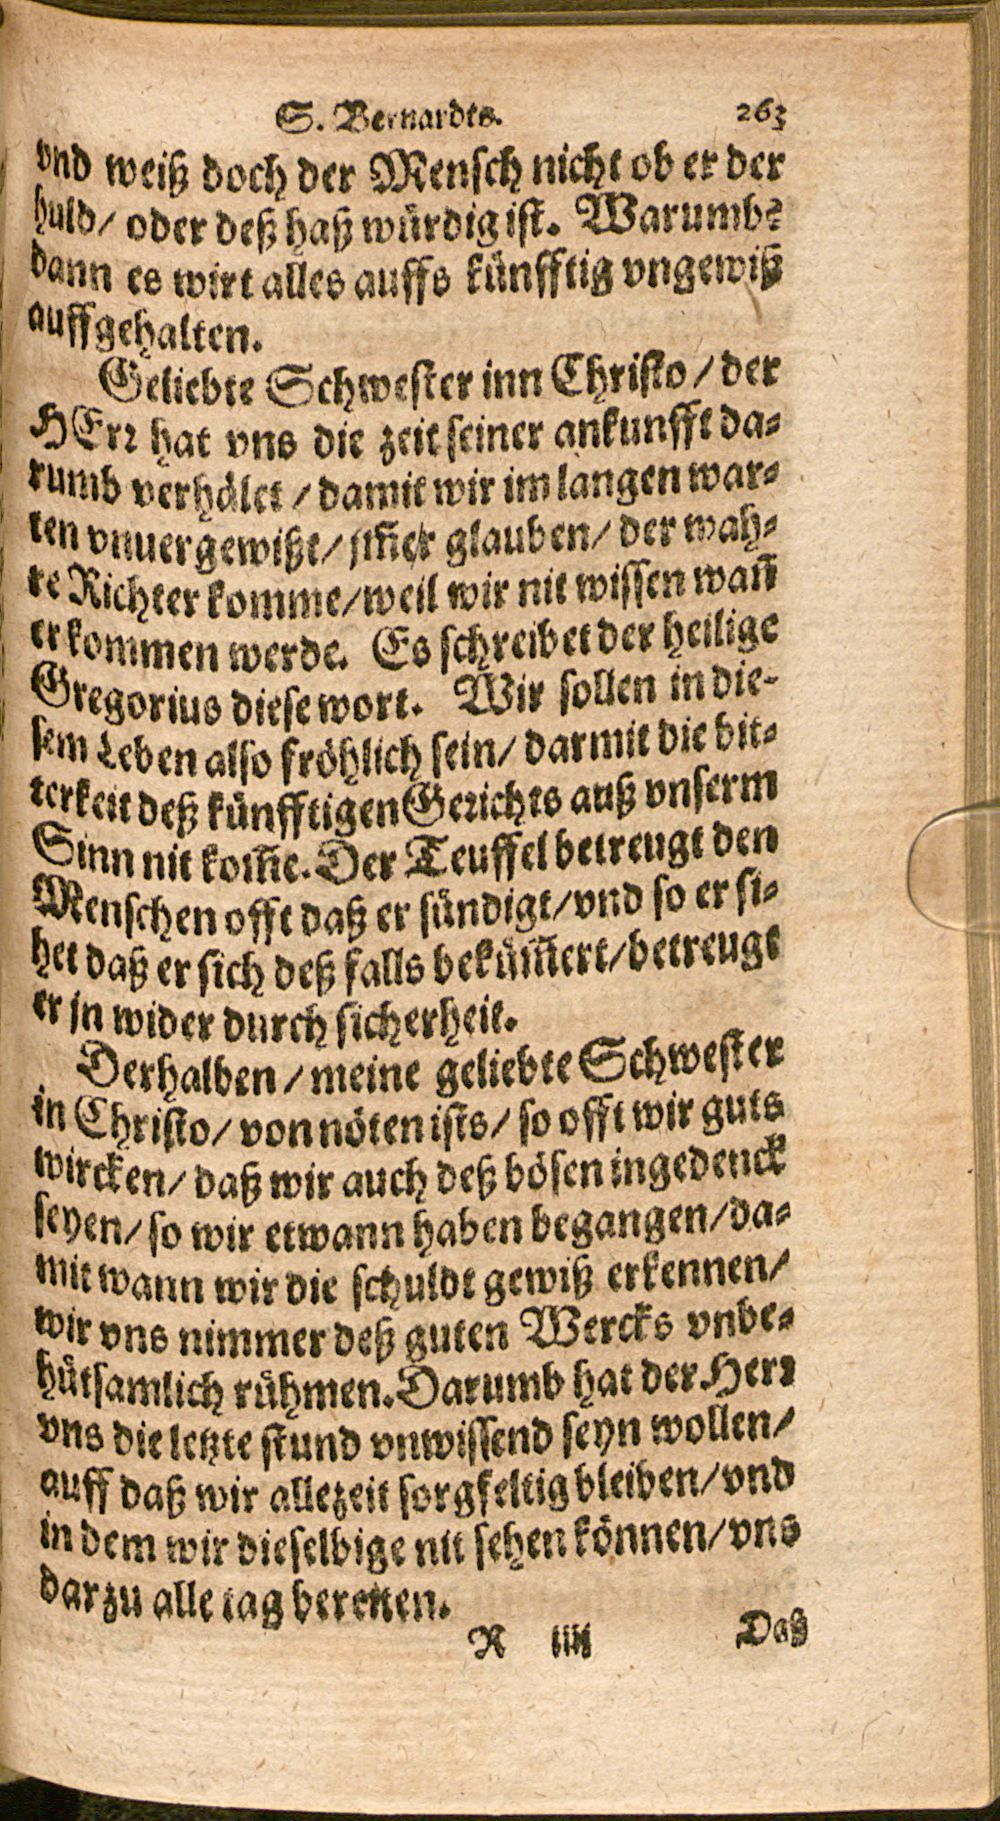 S. Bernardts. 263
vnd weiß doch der Mensch nicht ob er der
huld/ oder deß haß würdig ist. Warumb?
dann es wirt alles auffs künfftig vngewiß
auffgehalten.
Geliebte Schwester inn Christo/ der
HErꝛ hat vns die zeit seiner ankunfft da⸗
rumb verhålet/ damit wir im langen war⸗
ten vnuergewißt/ jm̃er glauben/ der wah⸗
re Richter komme/ weil wir nit wissen wañ
er kommen werde. Es schreibet der heilige
Gregorius diese wort. Wir sollen in die⸗
sem Leben also fröhlich sein/ darmit die bit⸗
terkeit deß künfftigen Gerichts auß vnserm
Sinn nit kom̃e. Der Teuffel betreugt den
Menschen offt daß er sündigt/ vnd so er si⸗
het daß er sich deß falls beküm̃ert/ betreugt
er jn wider durch sicherheit.
Derhalben/ meine geliebte Schwester
in Christo/ von nöten ists/ so offt wir guts
wircken/ daß wir auch deß bösen ingedenck
seyen/ so wir etwann haben begangen/ da⸗
mit wann wir die schuldt gewiß erkennen/
wir vns nimmer deß guten Wercks vnbe⸗
hütsamlich rühmen. Darumb hat der Herꝛ
vns die letzte stund vnwissend seyn wollen/
auff daß wir allezeit sorgfeltig bleiben/ vnd
in dem wir dieselbige nit sehen können/ vns
darzu alle tag bereiten.
R iiij Daß